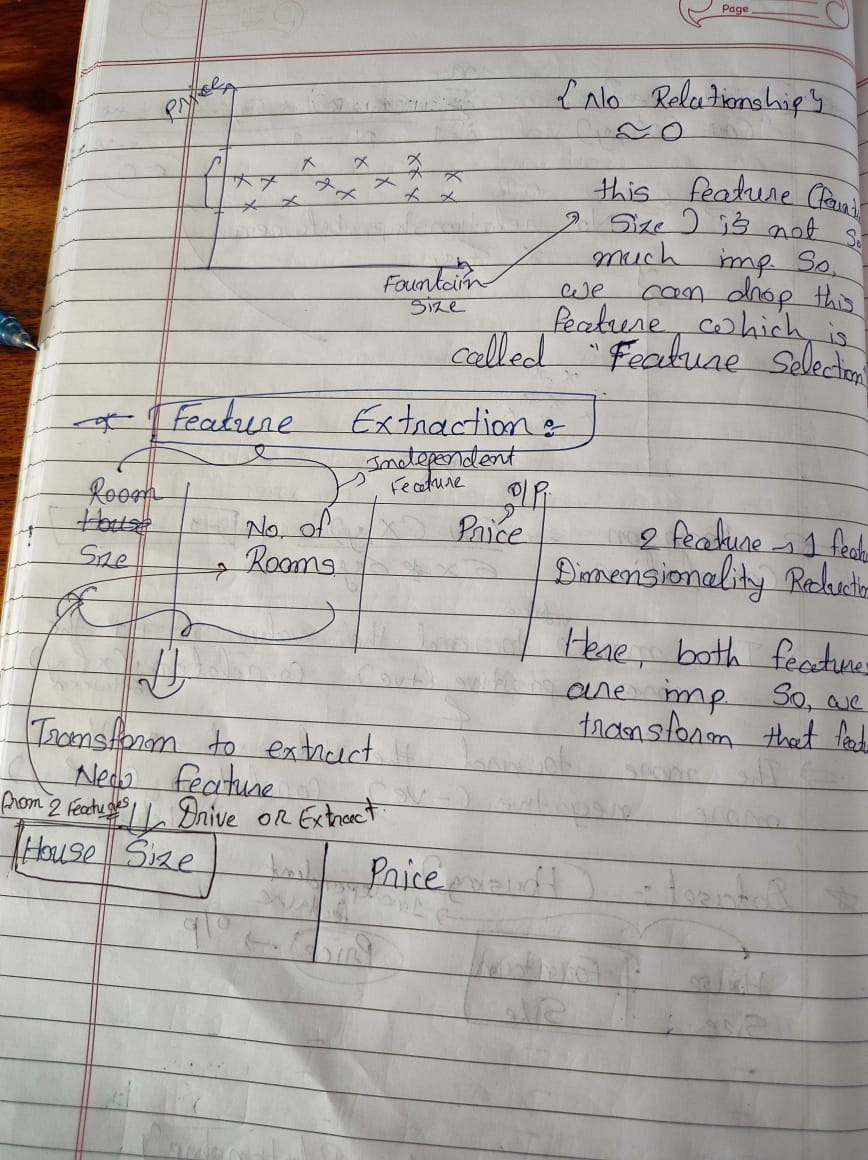 Page
Price
{ No Relationship }
≈ 0
this feature (Fount
Size) is not so
much imp. So,
we can drop this
feature, which is
called "Feature Selection
Fountain
Size
Feature Extraction :-
Independent
Feature
O/P
Room
House
Size
No. of
Rooms
Price
2 feature → 1 feat
Dimensionality Reductio
Here, both feature
are imp. So, we
transform that feat
Transform to extract
New feature
from 2 Features
Drive OR Extract.
House Size
Price